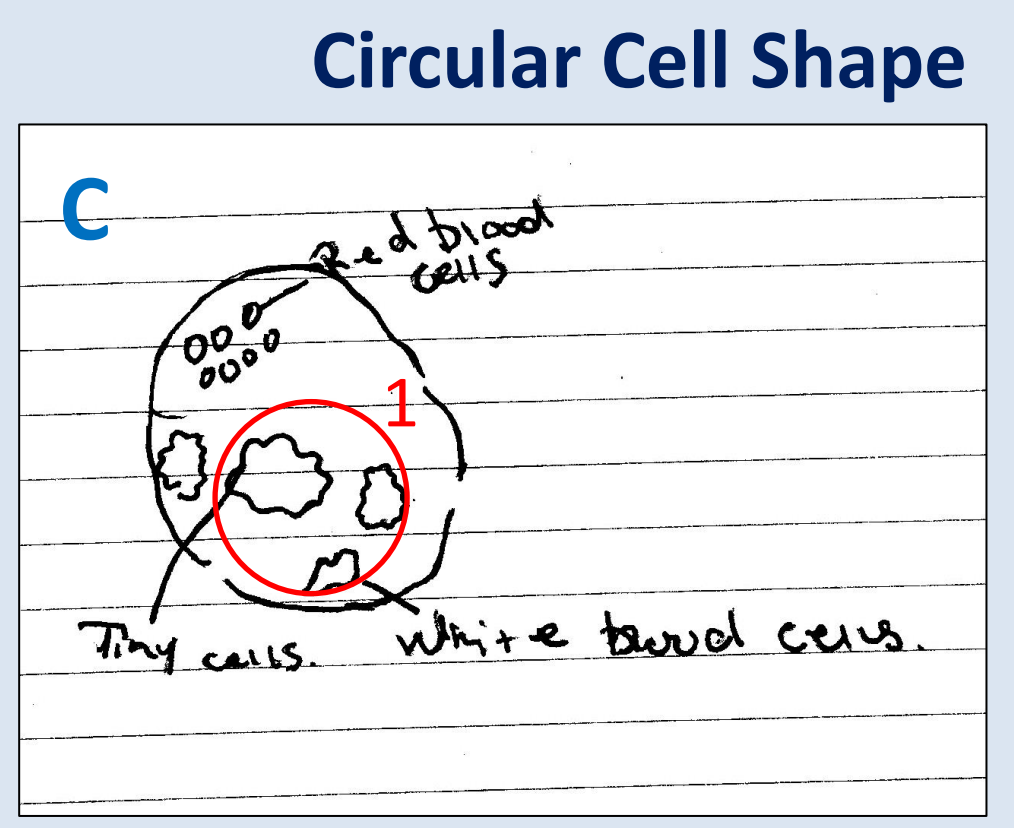 Circular Cell Shape
C
Red blood
cells
1
Tiny cells.
White blood cells.